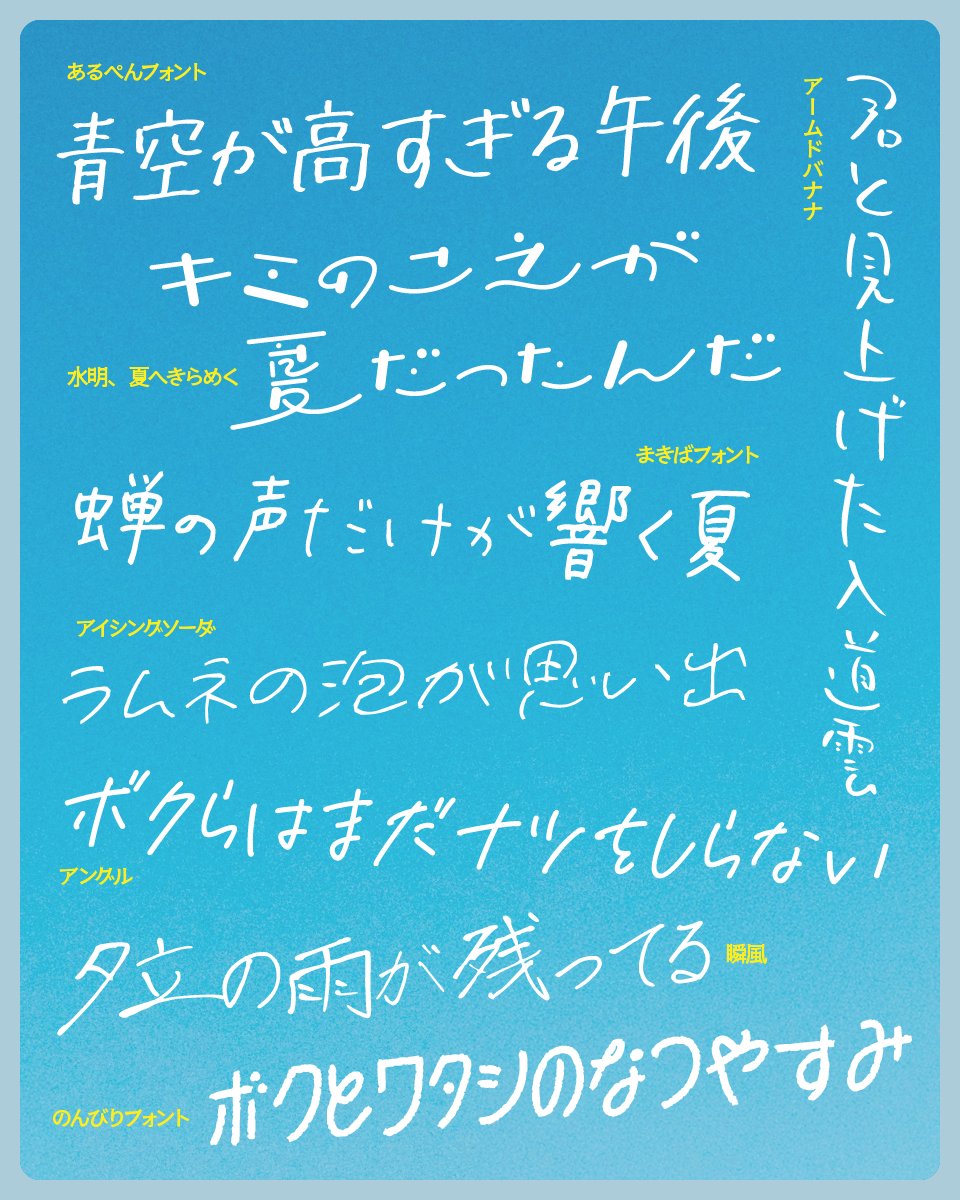 あるぺんフォント
青空が高すぎる午後
アームドバナナ
君と見上げた入道雲
キミのこえが
水明、夏へきらめく
夏だったんだ
まきばフォント
蝉の声だけが響く夏
アイシングソーダ
ラムネの泡が思い出
ボクらはまだナツをしらない
アングル
夕立の雨が残ってる
瞬風
のんびりフォント
ボクとワタシのなつやすみ